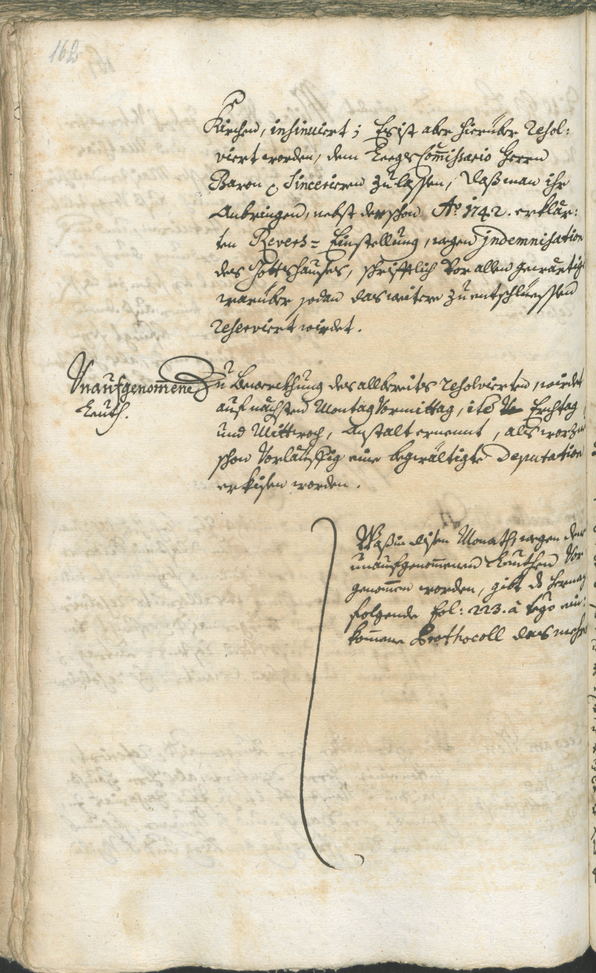 162
Kirchen, insinuiert; Es ist aber hierüber resol:
viert worden, dem Kriegs Com̄issario Herrn
Baron zu lassen, daß man ihr
Anbringen, nebst der schon A.o 1742. erklär:
ten Revers= Einstellung, wegen Indemnisation
des Gottshauses, schrifftlich vor allen gewärtig
warüber sodan das weitere zu entschliessen
reserviert wirdet.
Unaufgenom̄ene
Leuth.
Zu Bewerckhung des allbereits resolvierten, wirdet
auf nächsten Montag Vormittag, Erchtag
und Mittwoch, Anstalt ernennt, als worzu
schon vorläuffig eine begwältigte Deputation
erkisen worden.
Waß in disen Monath wegen der
unaufgenom̄enen Leuthen Vor
genom̄en worden, gibt
folgende fol: 223. à tergo ein=
kom̄ene Prothocoll das mehre